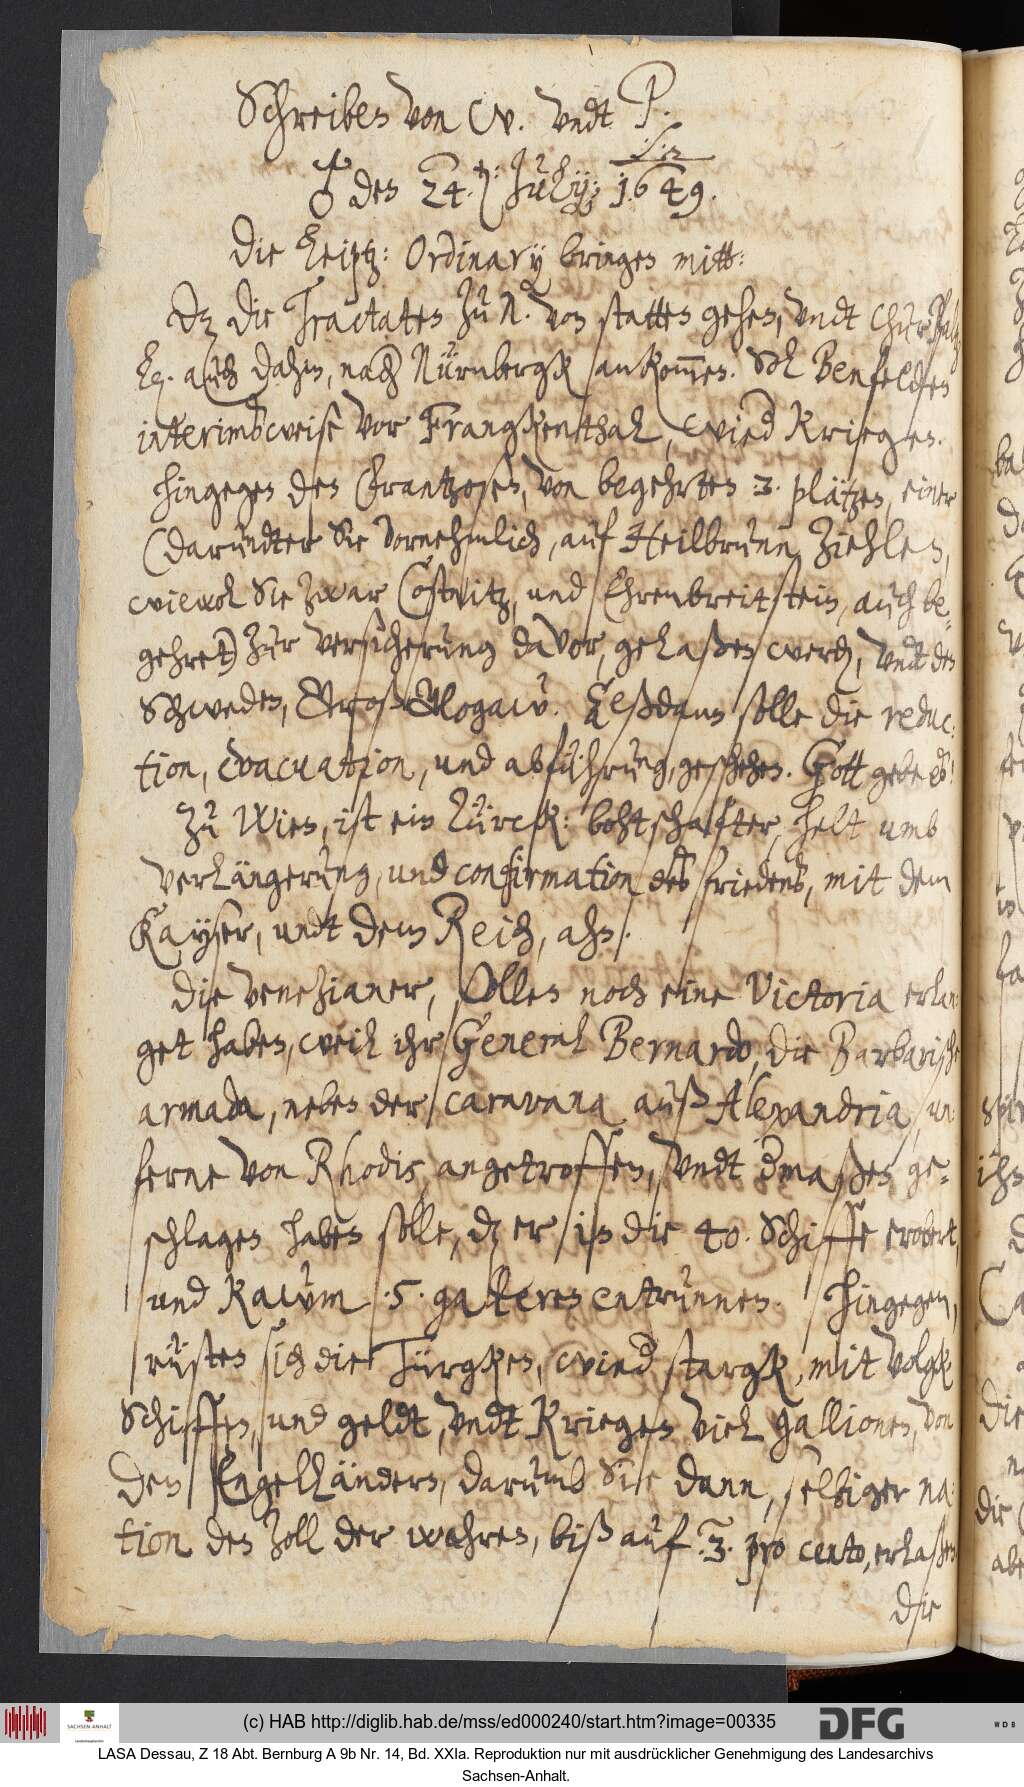 Schreiben von W. vndt P.
♂ den 24. July: 1649.
Die Leiptz: Ordinary bringen mitt:
Dz die Tractaten zu N. von statten gehen, vndt ChurPfaltz
auch dahin, nach Nürnbergk ankommen. Sol Benfelden
interimsweise vor Frangkenthal, wied Kriegen.
hingegen den Frantzosen, von begehrten 3. plätzen, einer
(darundter Sie vornehmlich, auf Heilbrunn ziehlen,
wiewol Sie zwar Costnitz, und Ehrenbreitstein, auch be-
gehret) zur versicherung davor, gelaßen werden, vndt den
Schweden, Groß Glogaw. Alßdann solle die reduc:
tion, evacuation, und abführung, geschehen. Gott gebe es!
Zu Wien, ist ein Türck: bohtschaffter, helt umb
verlängerung, und confirmation des friedens, mit dem
Kayser, undt dem Reich, ahn.
Die Venezianer, sollen noch eine Victoria erlan:
get haben, weil ihr General Bernardo, die Barbarische
armada, neben der caravana auß Alexandria, un:
ferne von Rhodis, angetroffen, vndt dermaßen ge-
schlagen haben solle, dz er in die 40. Schiffe erobert,
und kaum .5. galleren entrunnen. Hingegen,
rüsten sich die Türgken, wied stargk, mit volgk
Schiffen, und geldt, vndt Kriegen viel gallionen, von
den Engelländern, darumb Sie dann, selbiger na:
tion den Zoll der wahren, biß auf .3. pro cento, erlaßen
Die
(c) HAB http://diglib.hab.de/mss/ed000240/start.htm?image=00335
SACHSEN-ANHALT
DFG
WDB
LASA Dessau, Z 18 Abt. Bernburg A 9b Nr. 14, Bd. XXIa. Reproduktion nur mit ausdrücklicher Genehmigung des Landesarchivs
Sachsen-Anhalt.